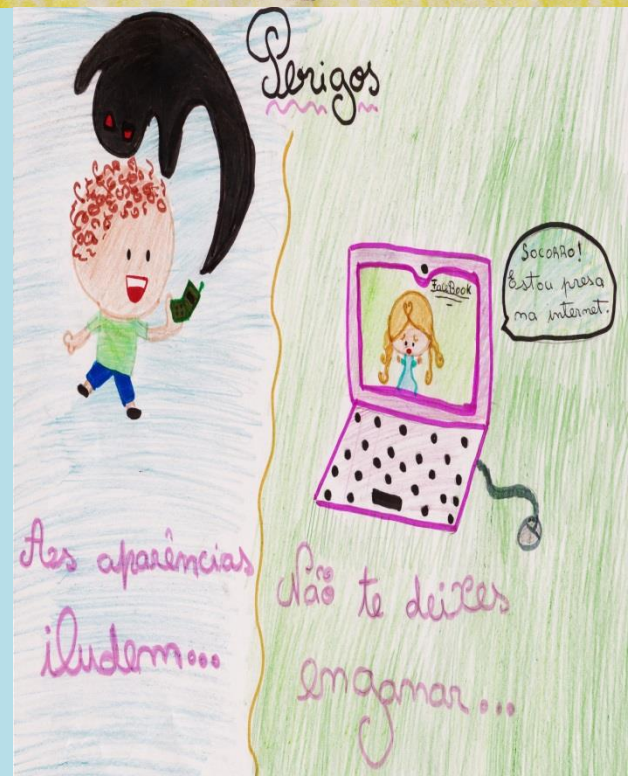 Perigos
FaceBook
SOCORRO!
Estou presa
na internet.
As aparências
iludem...
Não te deixes
enganar...